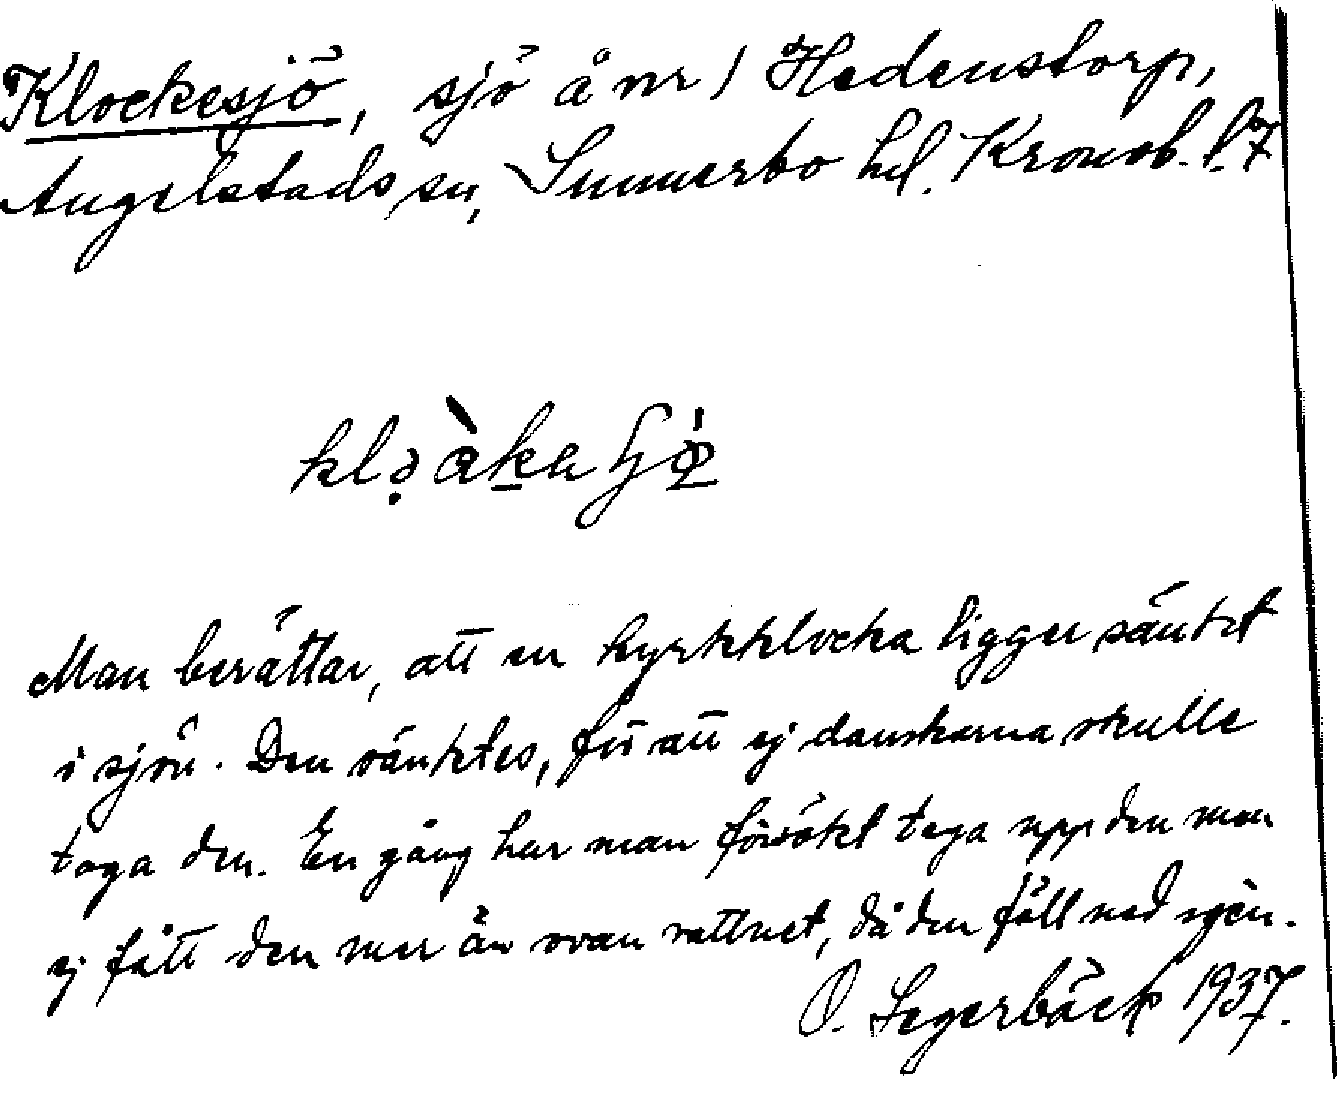 Klockesjö, sjö å nr 1 Hedenstorp,
Angelstads sn, Sunnerbo hd. Kronob. l.
Man berättar, att en kyrkklocka ligger sänkt
i sjön. Den sänktes, för att ej danskarna skulle
taga den. En gång har man försökt taga upp den men
ej fått den mer än ovan vattnet, då den föll ned igen.
O. Segerbäck 1937.